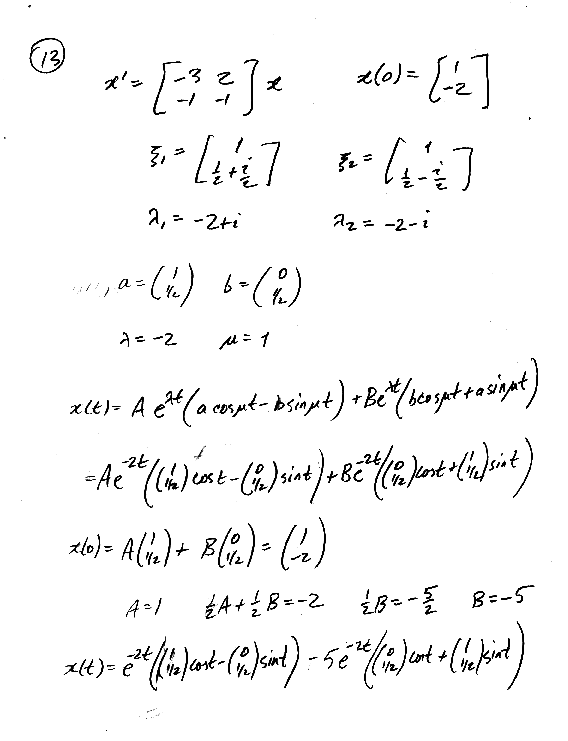 (13)
x' = [-3 2; -1 -1] x   x(0) = [1; -2]
ξ₁ = [1; 1/2 + i/2]   ξ₂ = [1; 1/2 - i/2]
λ₁ = -2+i   λ₂ = -2-i
a = (1; 1/2)   b = (0; 1/2)
λ = -2   μ = 1
x(t) = A e^{λt} (a cos μt - b sin μt) + B e^{λt} (b cos μt + a sin μt)
= A e^{-2t} ((1; 1/2) cos t - (0; 1/2) sin t) + B e^{-2t} ((0; 1/2) cos t + (1; 1/2) sin t)
x(0) = A (1; 1/2) + B (0; 1/2) = (1; -2)
A = 1   1/2 A + 1/2 B = -2   1/2 B = -5/2   B = -5
x(t) = e^{-2t} ((1; 1/2) cos t - (0; 1/2) sin t) - 5 e^{-2t} ((0; 1/2) cos t + (1; 1/2) sin t)